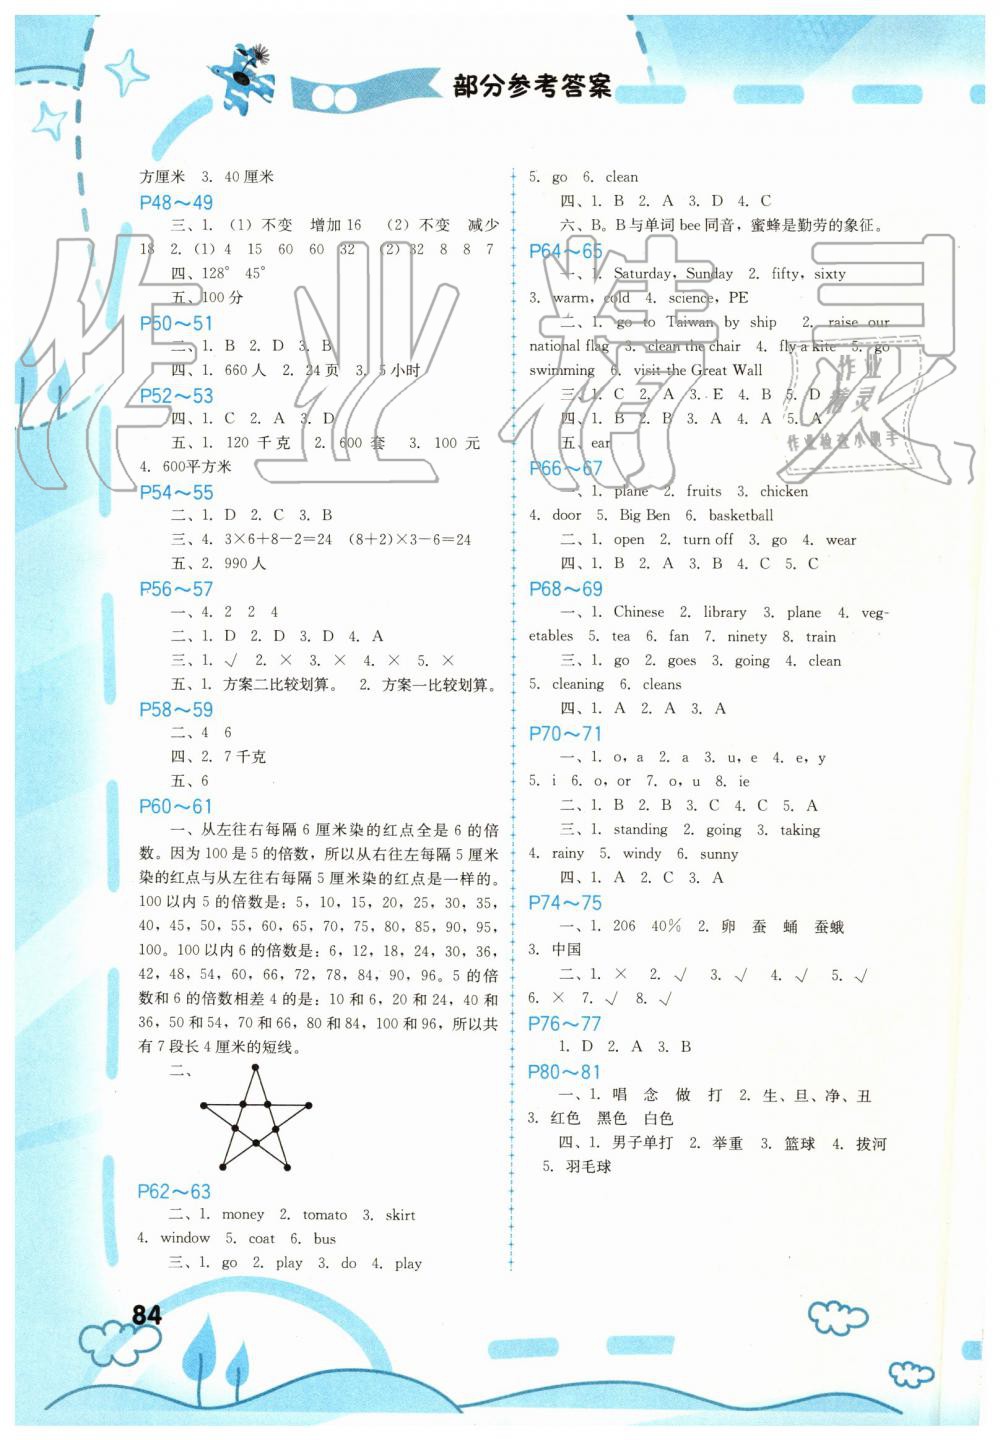 部分参考答案
方厘米 3. 40厘米
P48～49
三、1.（1）不变 增加16 （2）不变 减少
18 2.（1）4 15 60 60 32 （2）32 8 8 7
四、128° 45°
五、100分
P50～51
二、1. B 2. D 3. B
四、1. 660人 2. 24页 3. 5小时
P52～53
四、1. C 2. A 3. D
五、1. 120千克 2. 600套 3. 100元
4. 600平方米
P54～55
二、1. D 2. C 3. B
三、4. 3×6+8-2=24 (8+2)×3-6=24
五、2. 990人
P56～57
一、4. 2 2 4
二、1. D 2. D 3. D 4. A
三、1. √ 2. × 3. × 4. × 5. ×
五、1. 方案二比较划算。 2. 方案一比较划算。
P58～59
二、4 6
四、2. 7千克
五、6
P60～61
一、从左往右每隔6厘米染的红点全是6的倍
数。因为100是5的倍数，所以从右往左每隔5厘米
染的红点与从左往右每隔5厘米染的红点是一样的。
100以内5的倍数是：5，10，15，20，25，30，35，
40，45，50，55，60，65，70，75，80，85，90，95，
100。100以内6的倍数是：6，12，18，24，30，36，
42，48，54，60，66，72，78，84，90，96。5的倍
数和6的倍数相差4的是：10和6，20和24，40和
36，50和54，70和66，80和84，100和96，所以共
有7段长4厘米的短线。
二、
P62～63
二、1. money 2. tomato 3. skirt
4. window 5. coat 6. bus
三、1. go 2. play 3. do 4. play
5. go 6. clean
四、1. B 2. A 3. D 4. C
六、B。B与单词bee同音，蜜蜂是勤劳的象征。
P64～65
一、1. Saturday，Sunday 2. fifty，sixty
3. warm，cold 4. science，PE
二、1. go to Taiwan by ship 2. raise our
national flag 3. clean the chair 4. fly a kite 5. go
swimming 6. visit the Great Wall
三、1. C 2. A 3. E 4. B 5. D
四、1. B 2. B 3. A 4. A 5. A
五、ear
P66～67
一、1. plane 2. fruits 3. chicken
4. door 5. Big Ben 6. basketball
二、1. open 2. turn off 3. go 4. wear
四、1. B 2. A 3. B 4. C 5. C
P68～69
一、1. Chinese 2. library 3. plane 4. veg-
etables 5. tea 6. fan 7. ninety 8. train
三、1. go 2. goes 3. going 4. clean
5. cleaning 6. cleans
四、1. A 2. A 3. A
P70～71
一、1. o，a 2. a 3. u，e 4. e，y
5. i 6. o，or 7. o，u 8. ie
二、1. B 2. B 3. C 4. C 5. A
三、1. standing 2. going 3. taking
4. rainy 5. windy 6. sunny
四、1. A 2. C 3. A
P74～75
一、1. 206 40% 2. 卵 蚕 蛹 蚕蛾
3. 中国
二、1. × 2. √ 3. √ 4. √ 5. √
6. × 7. √ 8. √
P76～77
1. D 2. A 3. B
P80～81
一、1. 唱 念 做 打 2. 生、旦、净、丑
3. 红色 黑色 白色
四、1. 男子单打 2. 举重 3. 篮球 4. 拔河
5. 羽毛球
84
作业精灵
作业
精灵
作业检查小助手